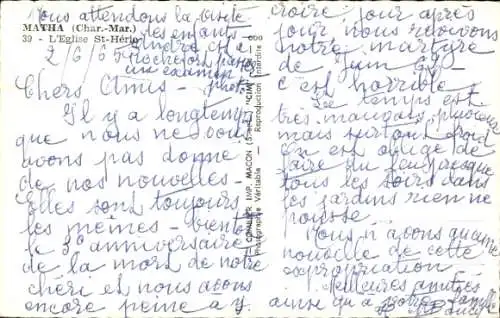 Nous attendons la visite
MATHA (Char.-Mar.)
des enfants
39 - L'Eglise St-Hérie
André est à
2/6/65
Rochefort passe
un examen
Chers Amis -
Il y a longtemps
que nous ne vous
avons pas donné
de nos nouvelles -
Elles sont toujours
les mêmes - bientôt
le 3° anniversaire
de la mort de notre
chéri et nous avons
encore peine à y
COMBIER IMP. MACON (S.-&-L.) "CIM"
Photographie Véritable - Reproduction Interdite
croire; jour après
jour nous revivons
notre martyre
de Juin 62 -
c'est horrible !
Le temps est
très mauvais, pluvieux
mais surtout froid
on est obligé de
faire du feu presque
tous les soirs dans
les jardins rien ne
pousse ...
Nous n'avons aucune
nouvelle de cette
expropriation -
Meilleures amitiés
ainsi qu'à votre famille